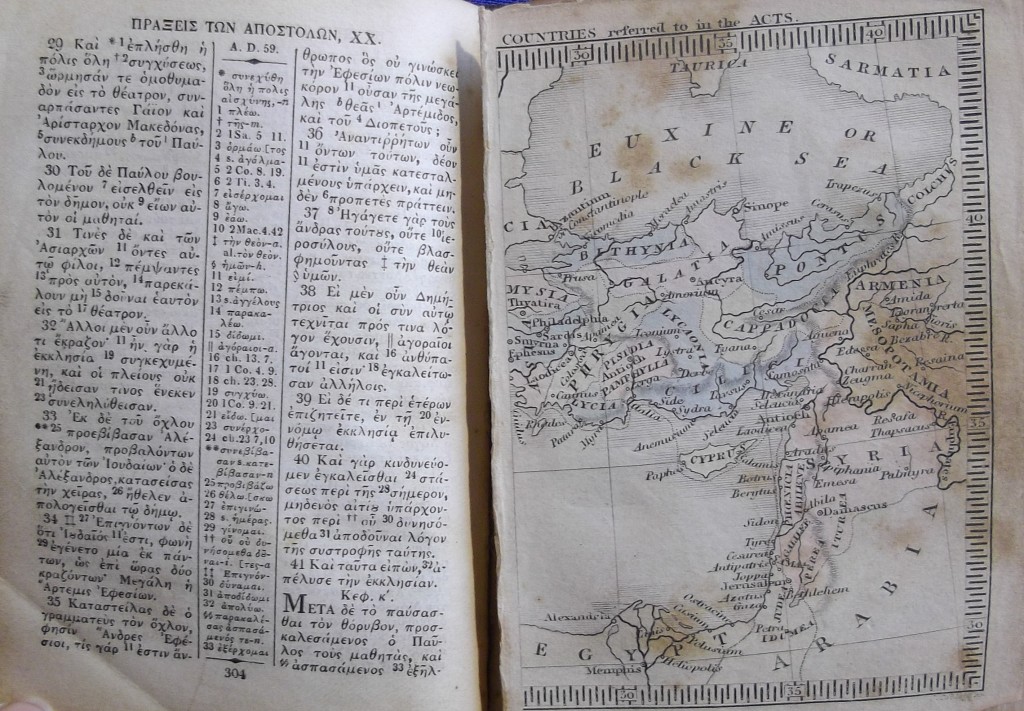 ΠΡΑΞΕΙΣ ΤΩΝ ΑΠΟΣΤΟΛΩΝ, XX.
29 Καὶ *¹ἐπλήσθη ἡ
πόλις ὅλη †²συγχύσεως,
³ὥρμησάν τε ὁμοθυμα-
δὸν εἰς τὸ θέατρον, συν-
αρπάσαντες Γάϊον καὶ
Ἀρίσταρχον Μακεδόνας,
⁵συνεκδήμους ᵇ τοῦ¹ Παύ-
λου.
30 Τοῦ δὲ Παύλου βου-
λομένου ⁷ εἰσελθεῖν εἰς
τὸν δῆμον, οὐκ ⁹εἴων αὐ-
τὸν οἱ μαθηταί.
31 Τινὲς δὲ καὶ τῶν
Ἀσιαρχῶν ¹¹ ὄντες αὐ-
τῷ φίλοι, ¹²πέμψαντες
πρὸς αὐτὸν, ¹⁴παρεκά-
λουν μὴ ¹⁵δοῦναι ἑαυτὸν
εἰς τὸ ¹⁷θέατρον.
32 Ἄλλοι μὲν οὖν ἄλλο
τι ἔκραζον· ¹¹ ἦν γὰρ ἡ
ἐκκλησία ¹⁹ συγκεχυμέ-
νη, καὶ οἱ πλείους οὐκ
²¹ ᾔδεισαν τίνος ἕνεκεν
²³συνεληλύθεισαν.
33 Ἐκ δὲ τοῦ ὄχλου
**²⁵ προεβίβασαν Ἀλέ-
ξανδρον, προβαλόντων
αὐτὸν τῶν Ἰουδαίων· ὁ δὲ
Ἀλέξανδρος, κατασείσας
τὴν χεῖρας, ²⁶ἤθελεν ἀ-
πολογεῖσθαι τῷ δήμῳ.
34 ‡‡ ²⁷Ἐπιγνόντων δὲ
ὅτι Ἰυδαῖός ¹¹ἐστι, φωνὴ
²⁹ἐγένετο μία ἐκ πάν-
των, ὡς ἐπὶ ὥρας δύο
κραζόντων· Μεγάλη ἡ
Ἄρτεμις Ἐφεσίων.
35 Καταστείλας δὲ ὁ
γραμματεὺς τὸν ὄχλον,
φησίν· Ἄνδρες Ἐφέ-
σιοι, τίς γάρ ¹¹ ἐστιν ἄν-
A. D. 59.
* συνεχύθη
ὅλη ἡ πόλις
αἰσχύνης,-π
1 πλέω.
† τῆς-m.
2 1Sa. 5 11.
3 ὁρμάω.
4 s. ἀγόλμα-
5 2 Co. 8. 19.
6 2 Ti. 3. 4.
7 εἰσέρχομαι
8 ἄγω.
9 ἐάω.
10 2 Mac.4.42
‡ τὴν θεὸν-a.
al. τὸν θεον.
§ ἡμῶν-h.
11 εἰμί.
12 πέμπω.
13 s. ἀγγέλους
14 παρακα-
λέω.
15 δίδωμι.
‖ ἀγόραιοι-a.
16 ch. 13. 7.
17 1 Co. 4. 9.
18 ch. 23. 28.
19 συγχύω.
20 1Co. 9. 21.
21 εἴδω. [μαι
23 συνέρχο-
24 ch. 23 7,10
** συνεβίβα-
σαν s. κατε-
βίβασαν-π
25 προβιβάζω
26 θέλω.
27 ἐπιγινώ-
28 s. ἡμέρας.
29 γίνομαι.
†† οὗ οὐ δυ-
νήσομεθα δῦ-
ναι-i.
‡‡ Ἐπιγνόν-
30 δύναμαι.
31 ἀποδίδωμι
32 ἀπολύω.
παρακαλέ-
σας ἀσπασά-
μενός τε-π.
33 ἐξέρχομαι
θρωπος ὃς οὐ γινώσκει
τὴν Ἐφεσίων πόλιν νεω-
κόρον ¹¹ οὖσαν τῆς μεγά-
λης ᵇ θεᾶς ¹ Ἀρτέμιδος,
καὶ τοῦ ⁴ Διοπετοῦς;
36 Ἀναντιῤῥήτων οὖν
¹¹ ὄντων τούτων, δέον
¹¹ ἐστὶν ὑμᾶς κατεσταλ-
μένους ὑπάρχειν, καὶ μη-
δὲν ⁶προπετὲς πράττειν.
37 ⁸ Ἠγάγετε γὰρ τοὺς
ἄνδρας τούτους, οὔτε ¹⁰ἱε-
ροσύλους, οὔτε βλασ-
φημοῦντας ‡ τὴν θεὰν
§ὑμῶν.
38 Εἰ μὲν οὖν Δημή-
τριος καὶ οἱ σὺν αὐτῷ
τεχνῖται πρός τινα λό-
γον ἔχουσιν, ‖ ἀγοραῖοι
ἄγονται, καὶ ¹⁶ ἀνθύπα-
τοί ¹¹ εἰσιν· ¹⁸ἐγκαλείτω-
σαν ἀλλήλοις.
39 Εἰ δέ τι περὶ ἑτέρων
ἐπιζητεῖτε, ἐν τῇ ²⁰ ἐν-
νόμῳ ἐκκλησίᾳ ἐπιλυ-
θήσεται.
40 Καὶ γὰρ κινδυνεύο-
μεν ἐγκαλεῖσθαι ²⁴ στά-
σεως περὶ τῆς ²⁸ σήμερον,
μηδενὸς αἰτίου ὑπάρχον-
τος περὶ †† οὗ ³⁰ δυνησό-
μεθα ³¹ ἀποδοῦναι λόγον
τῆς συστροφῆς ταύτης.
41 Καὶ ταῦτα εἰπὼν, ³²ἀ-
πέλυσε τὴν ἐκκλησίαν.
Κεφ. κ΄.
ΜΕΤΑ δὲ τὸ παύσασ-
θαι τὸν θόρυβον, προσ-
καλεσάμενος ὁ Παῦ-
λος τοὺς μαθητὰς, καὶ
ἀσπασάμενος ³³ ἐξῆλ-
304
COUNTRIES referred to in the ACTS.
30 35 40
TAURICA
SARMATIA
EUXINE OR
BLACK SEA
COLCHIS
Trapezus
Byzantium
Constantinople
Nicomedia
Amastris
Sinope
Amissus
Cerasus
40
BITHYNIA
PONTUS
Prusa
GALATIA
Ancyra
Euphrates
ARMENIA
MYSIA
Thyatira
Amorium
Philadelphia
PHRYGIA
CAPPADOCIA
Amida
Sardis
Smyrna
Ephesus
Iconium
LYCAONIA
MESOPOTAMIA
Laodicea
PISIDIA
Lystra
Tyana
Edessa
Resaina
Antioch
PAMPHYLIA
Perga
Derbe
CILICIA
Samosata
Charran
Zeugma
Nicephorium
LYCIA
Attalia
Side
Tarsus
Alexandria
Hierapolis
Rhodes
Patara
Myra
Sydra
Anemurium
Seleucia
Antioch
Resafa
Thapsacus
35
Laodicea
Apamea
SYRIA
Paphos
CYPRUS
Salamis
Epiphania
Emesa
Palmyra
Botrus
Berytus
PHŒNICIA
ABILENE
Abila
Damascus
Sidon
ITUREA
Tyre
GALILEE
Cesarea
Antipatris
PEREA
Joppa
Jerusalem
Azotus
Gaza
JUDEA
Bethlehem
ARABIA
Alexandria
Ostracine
Casium
Pelusium
Petra
IDUMEA
30
EGYPT
Heliopolis
Memphis
30 35